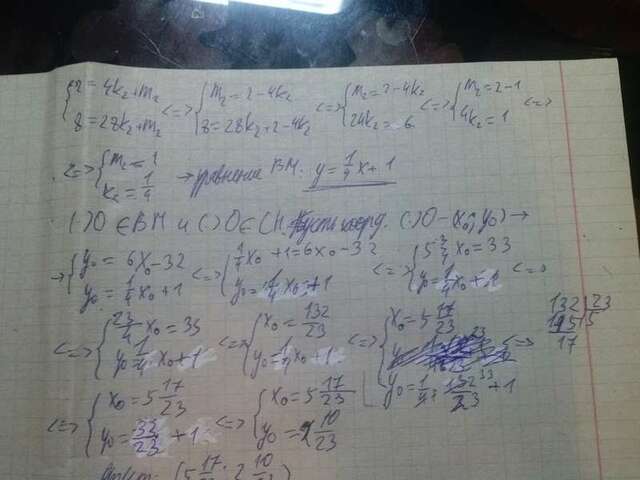 {2=4k₂+m₂ 8=28k₂+m₂ <=> {m₂=2-4k₂ 8=28k₂+2-4k₂ <=> {m₂=2-4k₂ 24k₂=6 <=> {m₂=2-1 4k₂=1 <=>
<=> {m₂=1 k₂=1/4 → уравнение BM: y=1/4x+1
(·)O∈BM и (·)O∈CH. Пусть коорд. (·)O-(x₀; y₀) →
→ {y₀=6x₀-32 y₀=1/4x₀+1 <=> {1/4x₀+1=6x₀-32 y₀=1/4x₀+1 <=> {5 3/4x₀=33 y₀=1/4x₀+1 <=>
<=> {23/4x₀=33 y₀=1/4x₀+1 <=> {x₀=132/23 y₀=1/4x₀+1 <=> {x₀=5 17/23 y₀=1/4·132/23+1 <=> 132 23 115 5 17
<=> {x₀=5 17/23 y₀=33/23+1 <=> {x₀=5 17/23 y₀=2 10/23
Ответ: (5 17/23; 2 10/23)